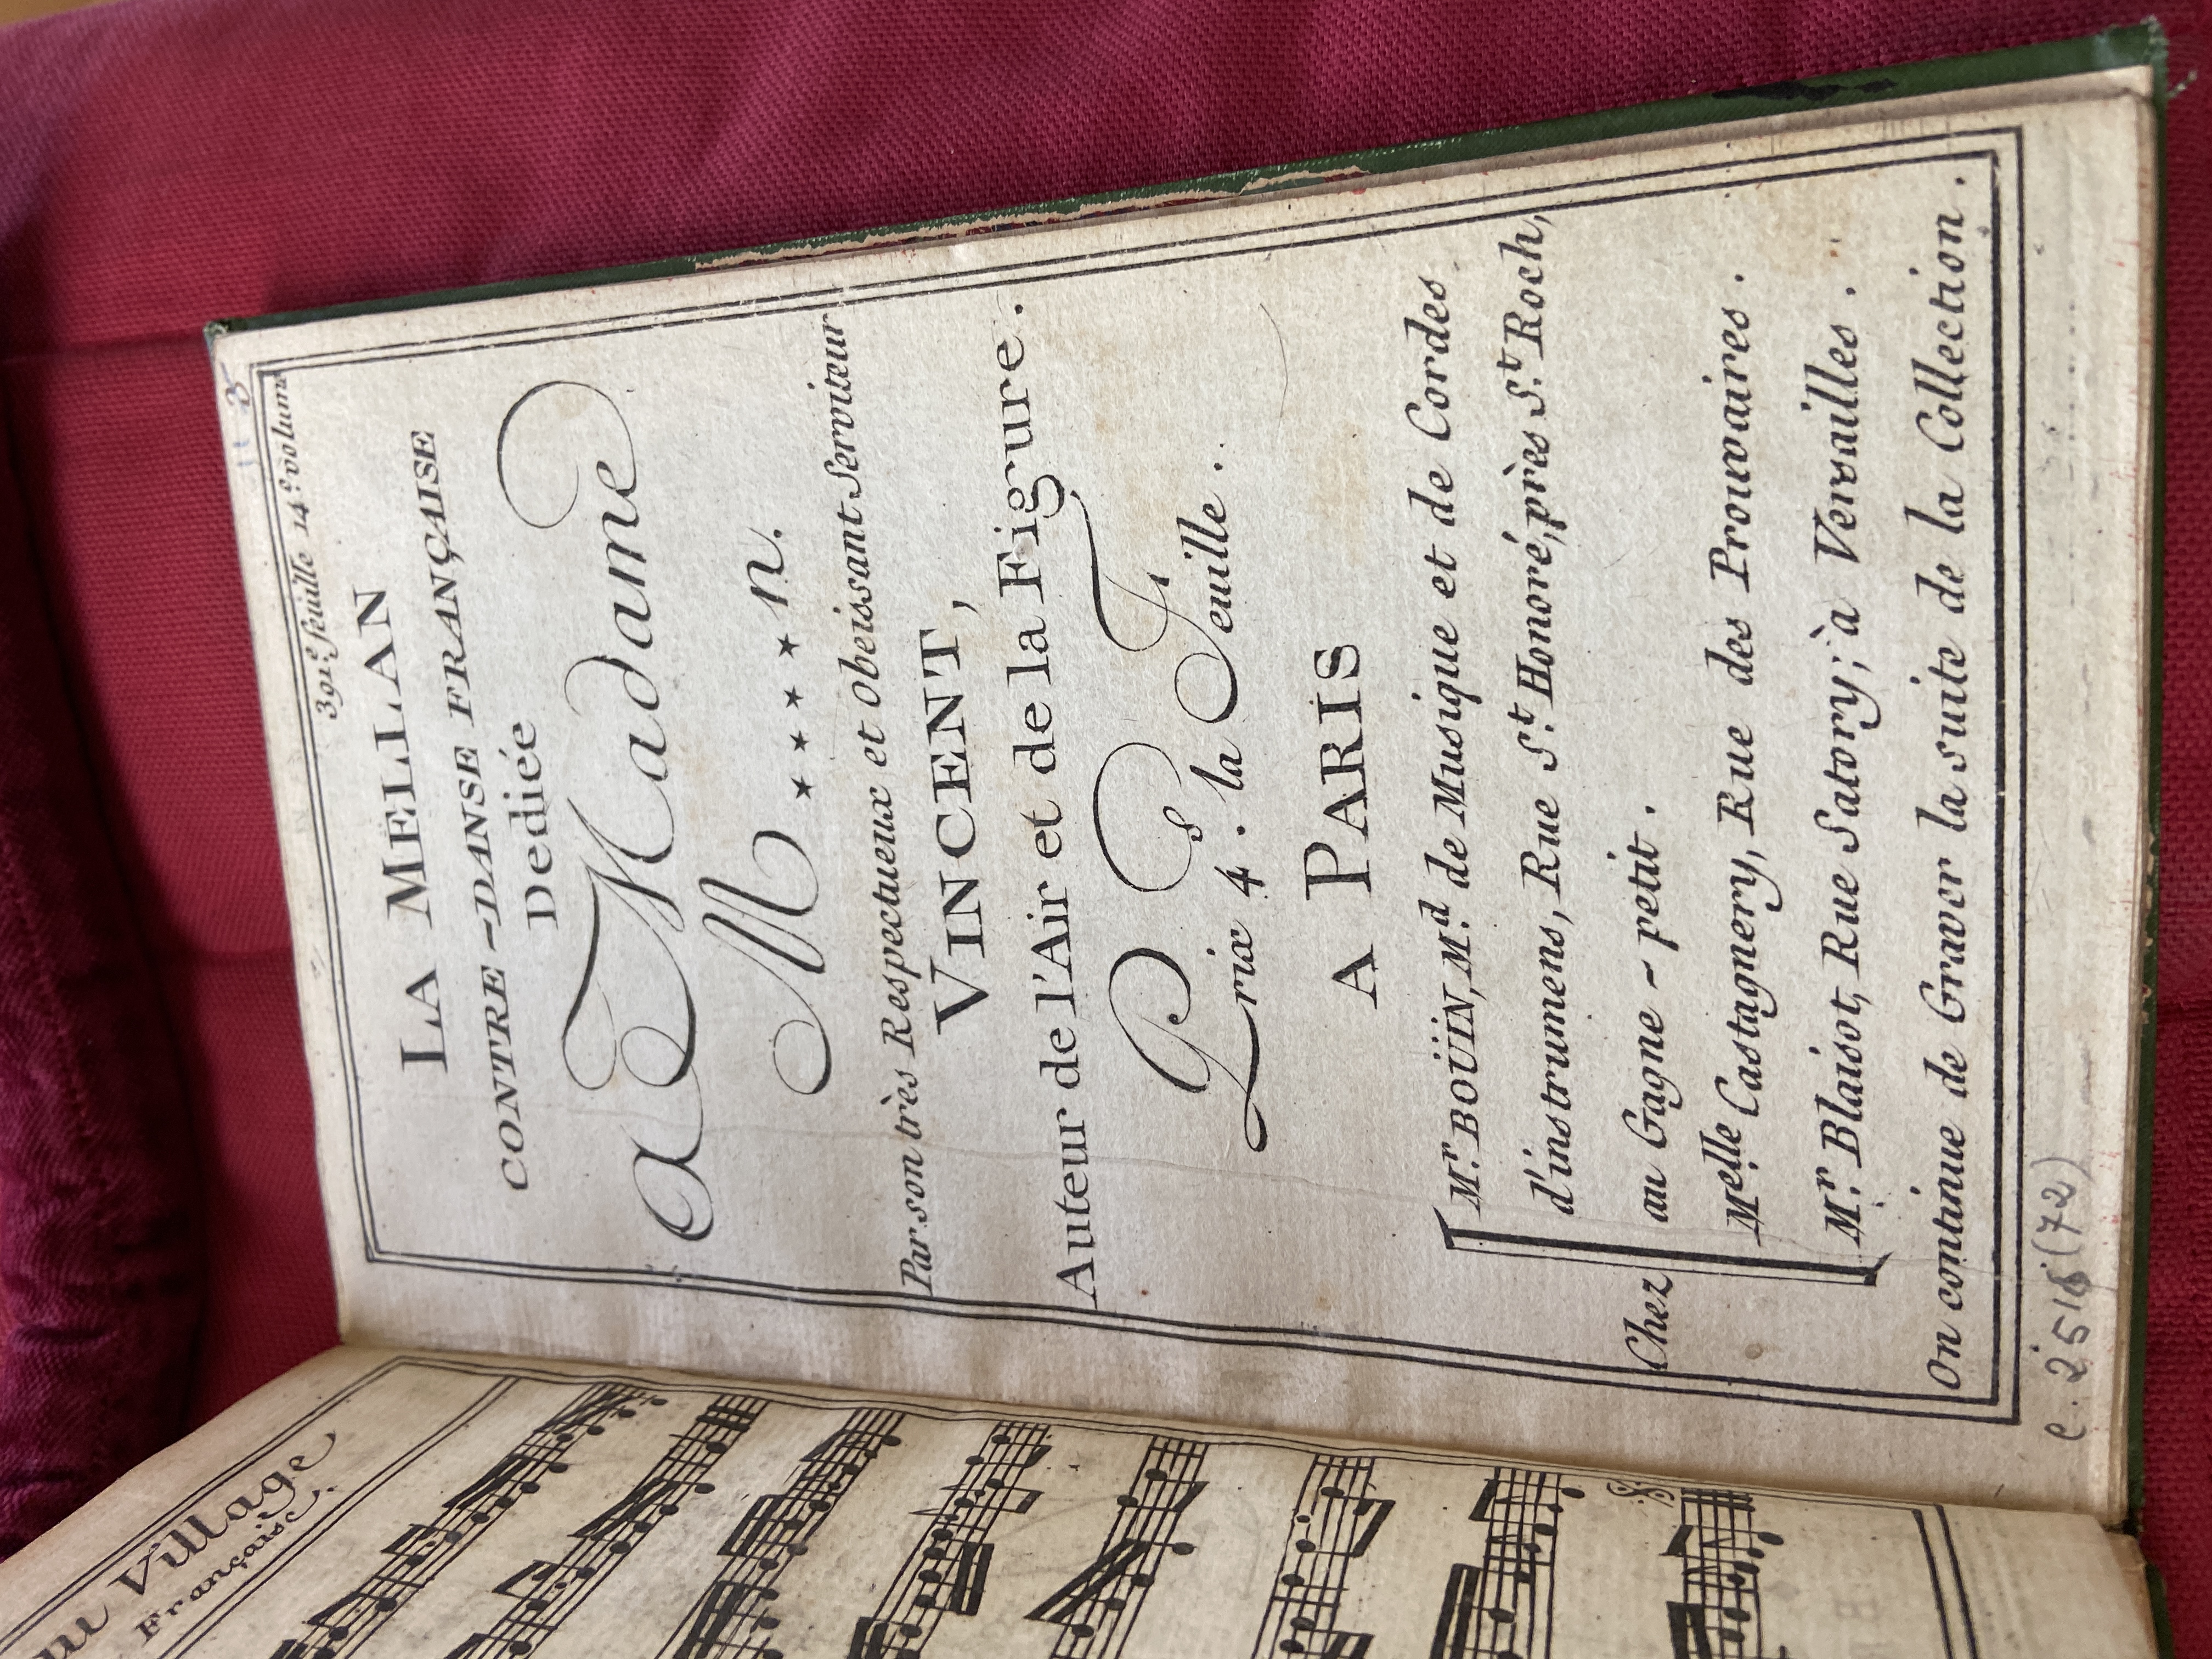 au Village
Française.
391.e feuille 14.e volume
LA MELLAN
CONTRE-DANSE FRANÇAISE
Dediée
a Madame
M * * * * n.
Par son très Respectueux et Obeissant Serviteur
VINCENT,
Auteur de l'Air et de la Figure.
Prix 4.s la Feuille.
A PARIS
Chez
M.r BOÜIN, M.d de Musique et de Cordes
d'instrumens, Rue S.t Honoré, près S.t Roch,
au Gagne-petit.
M.elle Castagnery, Rue des Prouvaires.
M.r Blaisot, Rue Satory; à Versailles.
On continue de Graver la suite de la Collection.